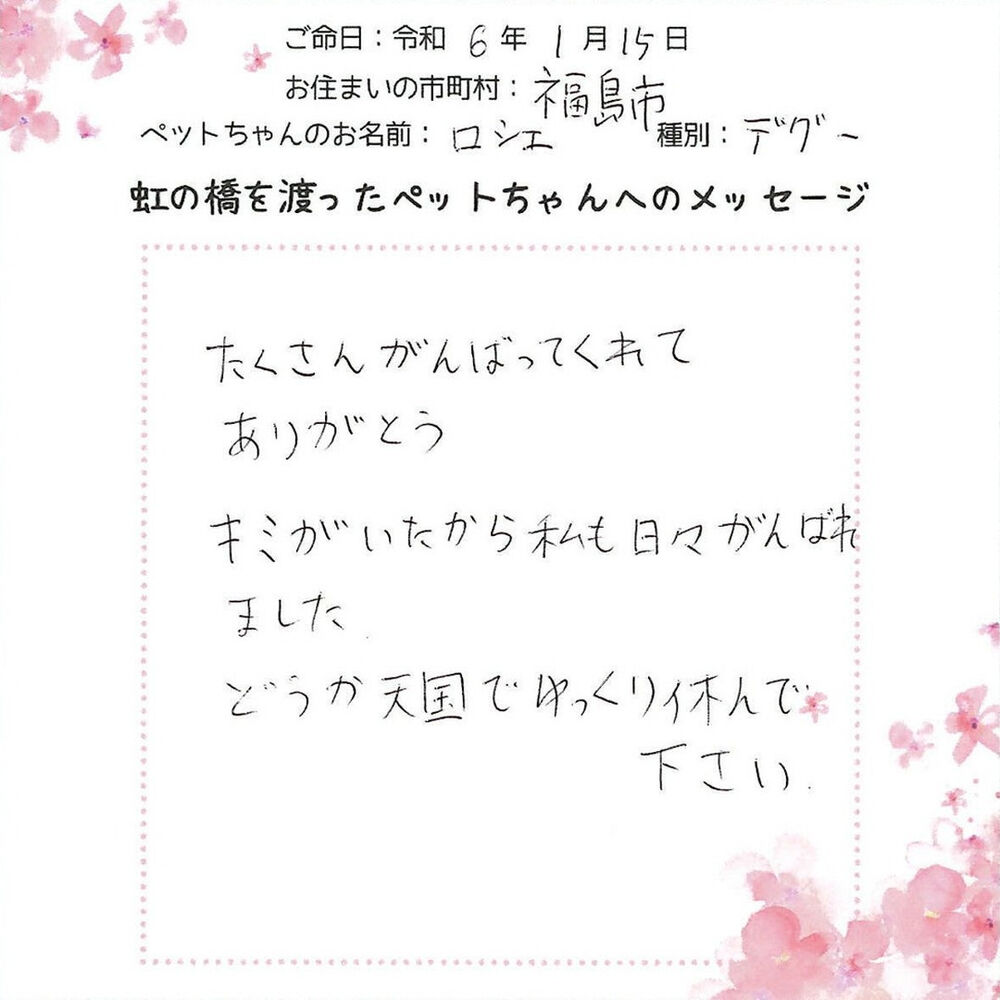 ご命日：令和 6 年 1 月 15 日
お住まいの市町村：福島市
ペットちゃんのお名前：ロシェ 種別：デグー
虹の橋を渡ったペットちゃんへのメッセージ
たくさんがんばってくれて
ありがとう
キミがいたから私も日々がんばれ
ました.
どうか天国でゆっくり休んで
下さい.